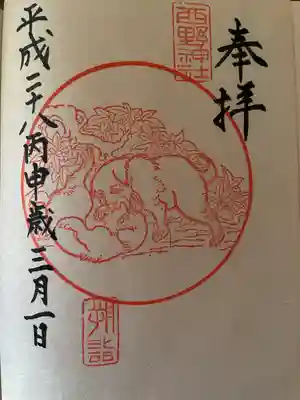 奉拝
西野神社
朔詣
平成二十八丙申歳三月一日